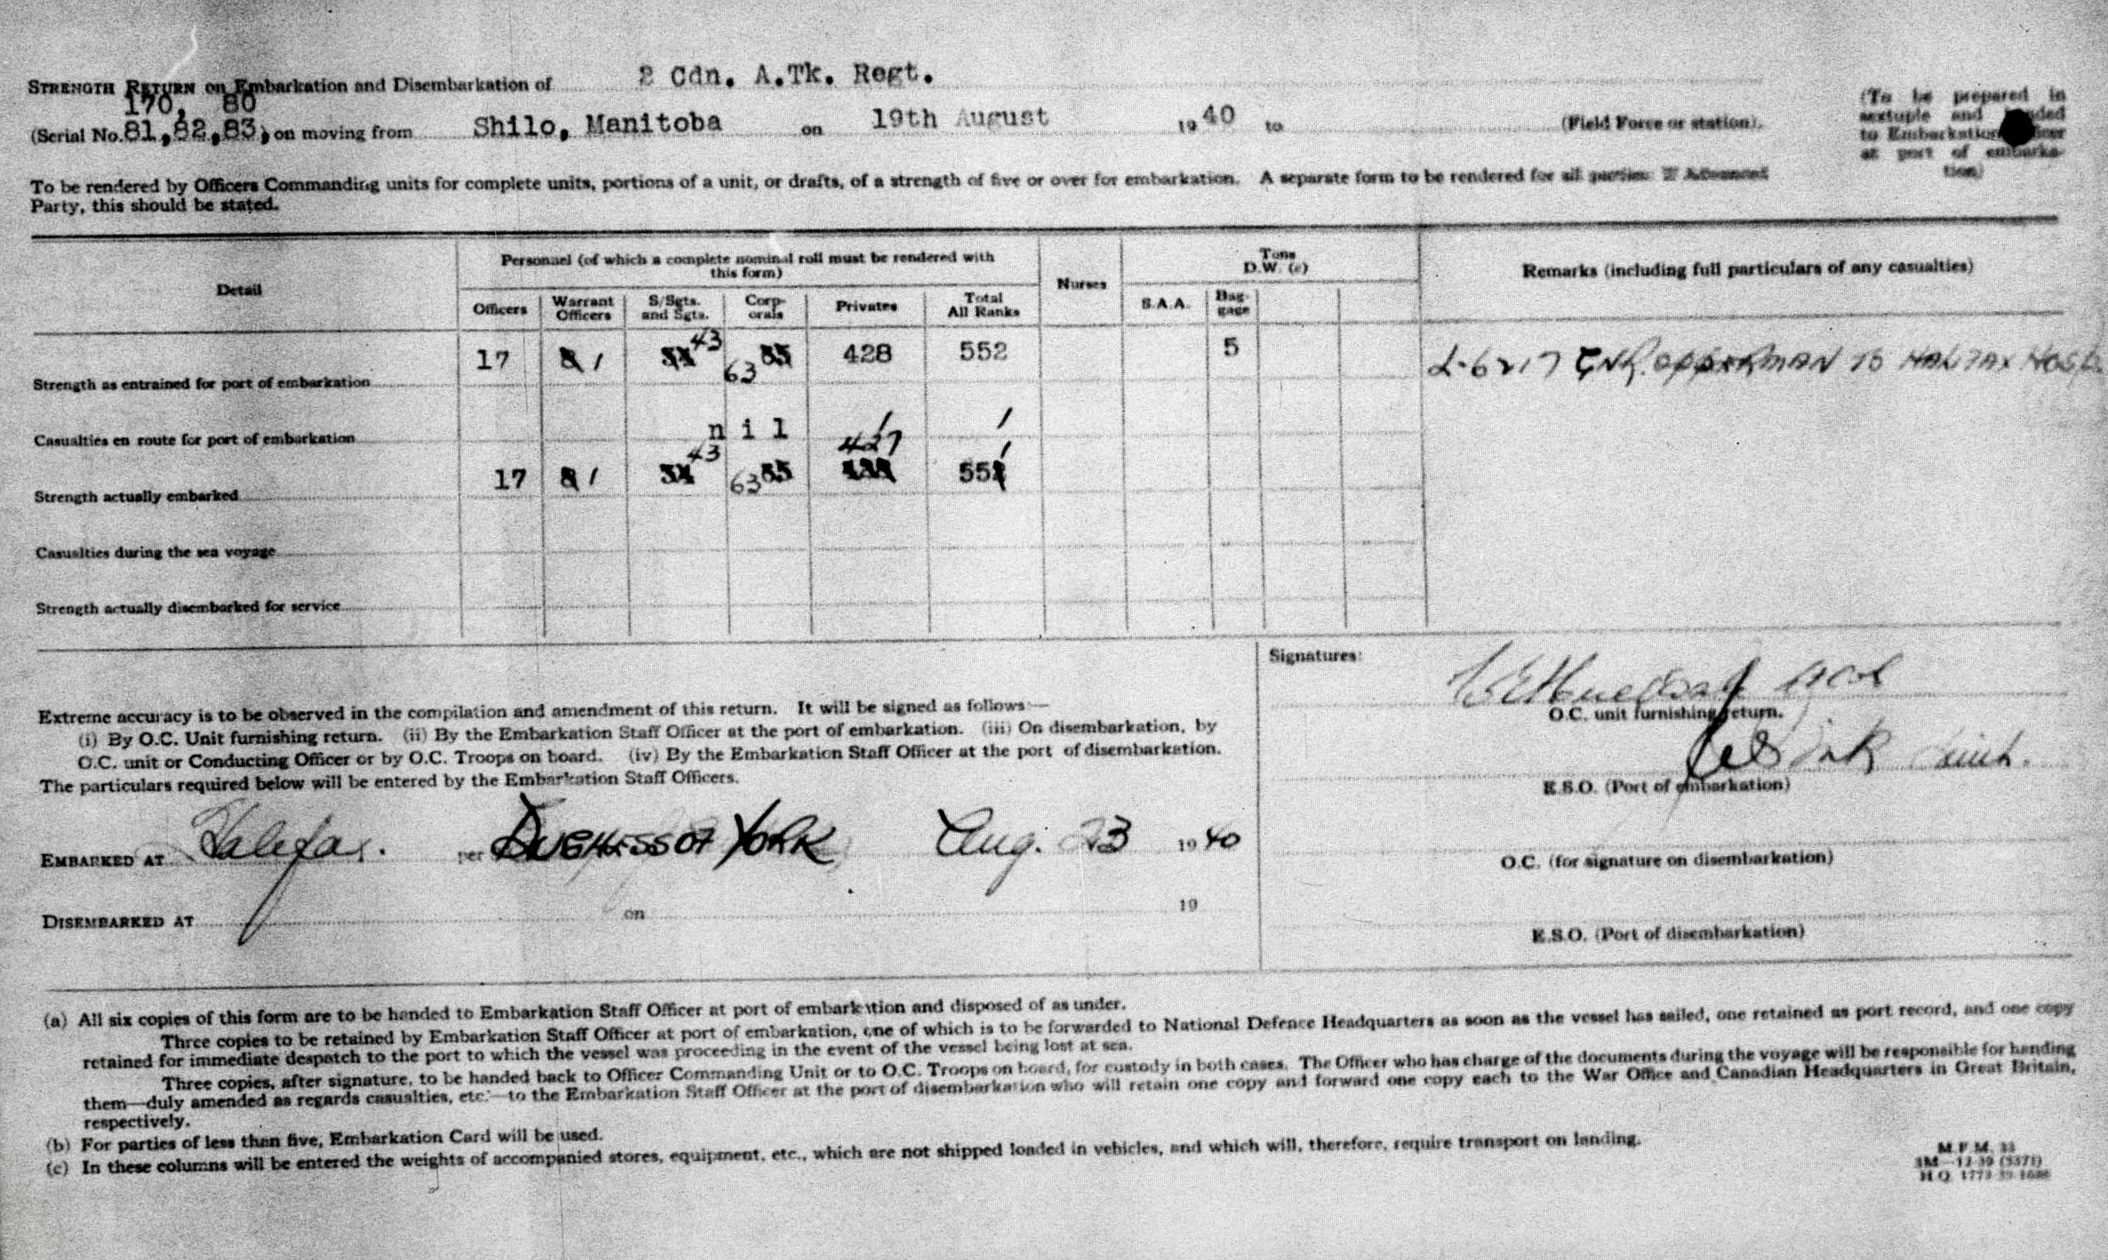 STRENGTH RETURN on Embarkation and Disembarkation of 2 Cdn. A.Tk. Regt.
170, 80
(Serial No. 81,82,83, on moving from Shilo, Manitoba on 19th August 1940 to (Field Force or station).
(To be prepared in
sextuple and handed
to Embarkation Officer
at port of embarka-
tion)
To be rendered by Officers Commanding units for complete units, portions of a unit, or drafts, of a strength of five or over for embarkation. A separate form to be rendered for all parties. If Advanced
Party, this should be stated.
Detail
Personnel (of which a complete nominal roll must be rendered with
this form)
Nurses
Tons
D.W. (c)
Remarks (including full particulars of any casualties)
Officers
Warrant
Officers
S/Sgts.
and Sgts.
Corp-
orals
Privates
Total
All Ranks
S.A.A.
Bag-
gage
Strength as entrained for port of embarkation 17 1 43 63 428 552 5
L-6217 GNR. OPPERMAN TO HALIFAX HOSP.
Casualties en route for port of embarkation nil 1 1
Strength actually embarked 17 1 43 63 427 551
Casualties during the sea voyage
Strength actually disembarked for service
Signatures:
O.C. unit furnishing return.
Extreme accuracy is to be observed in the compilation and amendment of this return. It will be signed as follows:—
(i) By O.C. Unit furnishing return. (ii) By the Embarkation Staff Officer at the port of embarkation. (iii) On disembarkation, by
O.C. unit or Conducting Officer or by O.C. Troops on board. (iv) By the Embarkation Staff Officer at the port of disembarkation.
The particulars required below will be entered by the Embarkation Staff Officers.
E.S.O. (Port of embarkation)
EMBARKED AT Halifax. per DUCHESS OF YORK Aug. 23 1940
O.C. (for signature on disembarkation)
DISEMBARKED AT on 19
E.S.O. (Port of disembarkation)
(a) All six copies of this form are to be handed to Embarkation Staff Officer at port of embarkation and disposed of as under.
Three copies to be retained by Embarkation Staff Officer at port of embarkation, one of which is to be forwarded to National Defence Headquarters as soon as the vessel has sailed, one retained as port record, and one copy
retained for immediate despatch to the port to which the vessel was proceeding in the event of the vessel being lost at sea.
Three copies, after signature, to be handed back to Officer Commanding Unit or to O.C. Troops on board, for custody in both cases. The Officer who has charge of the documents during the voyage will be responsible for handing
them—duly amended as regards casualties, etc.—to the Embarkation Staff Officer at the port of disembarkation who will retain one copy and forward one copy each to the War Office and Canadian Headquarters in Great Britain,
respectively.
(b) For parties of less than five, Embarkation Card will be used.
(c) In these columns will be entered the weights of accompanied stores, equipment, etc., which are not shipped loaded in vehicles, and which will, therefore, require transport on landing.
M.F.M.
H.Q.